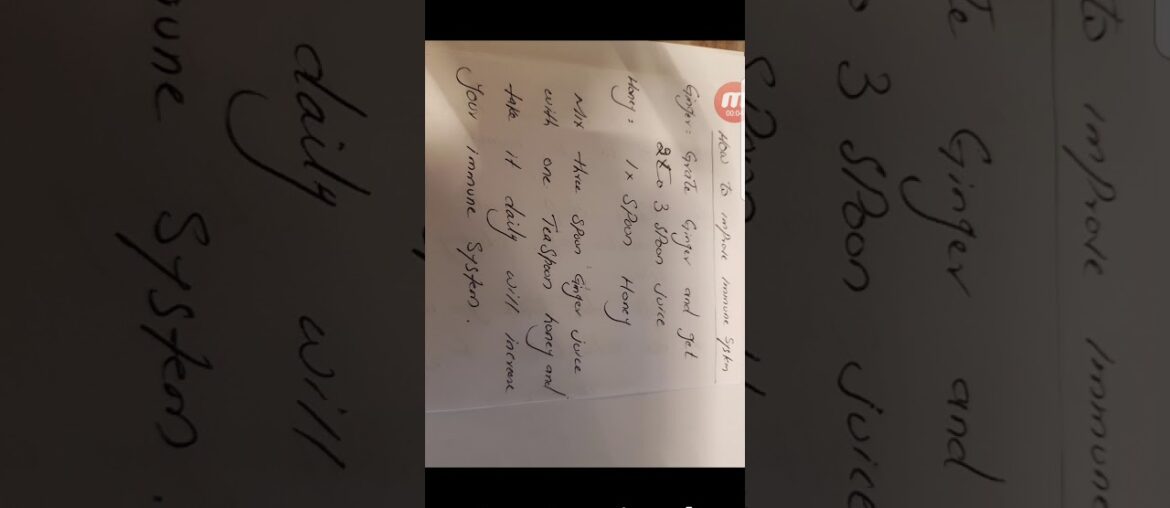 How to improve immune System
Ginger: Grate Ginger and get
2to 3 spoon juice
Honey: 1x Spoon Honey
Mix three spoon Ginger juice
with one TeaSpoon honey and
take it daily will increase
your immune System.
00:04